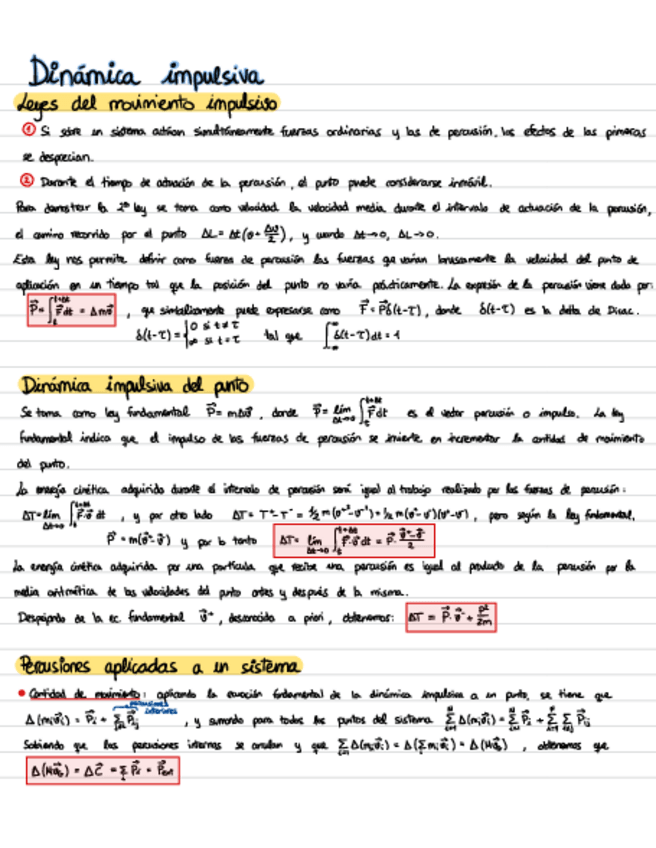 Dinámica impulsiva
Leyes del movimiento impulsivo
① Si sobre un sistema actúan simultáneamente fuerzas ordinarias y las de percusión, los efectos de las primeras
se desprecian.
② Durante el tiempo de actuación de la percusión, el punto puede considerarse inmóvil.
Para demostrar la 2ª ley se toma como velocidad la velocidad media durante el intervalo de actuación de la percusión,
el camino recorrido por el punto ΔL = Δt(v + Δv/2), y cuando Δt→0, ΔL→0.
Esta ley nos permite definir como fuerza de percusión las fuerzas que varían bruscamente la velocidad del punto de
aplicación en un tiempo tal que la posición del punto no varía prácticamente. La expresión de la percusión viene dada por:
P⃗ = ∫_t^{t+Δt} F⃗ dt = Δmv⃗ , que simbólicamente puede expresarse como F⃗ = P⃗δ(t-τ), donde δ(t-τ) es la delta de Dirac.
δ(t-τ) = { 0 si t≠τ ∞ si t=τ tal que ∫_{-∞}^{∞} δ(t-τ)dt = 1
Dinámica impulsiva del punto
Se toma como ley fundamental P⃗ = mΔv⃗, donde P⃗ = lím_{Δt→0} ∫_t^{t+Δt} F⃗ dt es el vector percusión o impulso. La ley
fundamental indica que el impulso de las fuerzas de percusión se invierte en incrementar la cantidad de movimiento
del punto.
La energía cinética adquirida durante el intervalo de percusión será igual al trabajo realizado por las fuerzas de percusión:
ΔT = lím_{Δt→0} ∫_t^{t+Δt} F⃗·v⃗ dt , y por otro lado ΔT = T⁺-T⁻ = 1/2 m(v⁺²-v⁻²) = 1/2 m(v⁺-v⁻)(v⁺-v⁻), pero según la ley fundamental,
P⃗ = m(v⃗⁺-v⃗⁻) y por lo tanto ΔT = lím_{Δt→0} ∫_t^{t+Δt} F⃗·v⃗ dt = P⃗·(v⃗⁺-v⃗⁻)/2
La energía cinética adquirida por una partícula que recibe una percusión es igual al producto de la percusión por la
media aritmética de las velocidades del punto antes y después de la misma.
Despejando de la ec. fundamental v⃗⁺, desconocida a priori, obtenemos: ΔT = P⃗·v⃗⁻ + P²/2m
Percusiones aplicadas a un sistema
• Cantidad de movimiento: aplicando la ecuación fundamental de la dinámica impulsiva a un punto, se tiene que
percusiones interiores
Δ(mᵢv⃗ᵢ) = P⃗ᵢ + Σ P⃗ᵢⱼ , y sumando para todos los puntos del sistema Σ Δ(mᵢv⃗ᵢ) = Σ P⃗ᵢ + Σ Σ P⃗ᵢⱼ
Sabiendo que las percusiones internas se anulan y que Σ Δ(mᵢv⃗ᵢ) = Δ(Σ mᵢv⃗ᵢ) = Δ(Mv⃗_G) , obtenemos que
Δ(Mv⃗_G) = ΔC⃗ = Σ P⃗ᵢ = P⃗ext